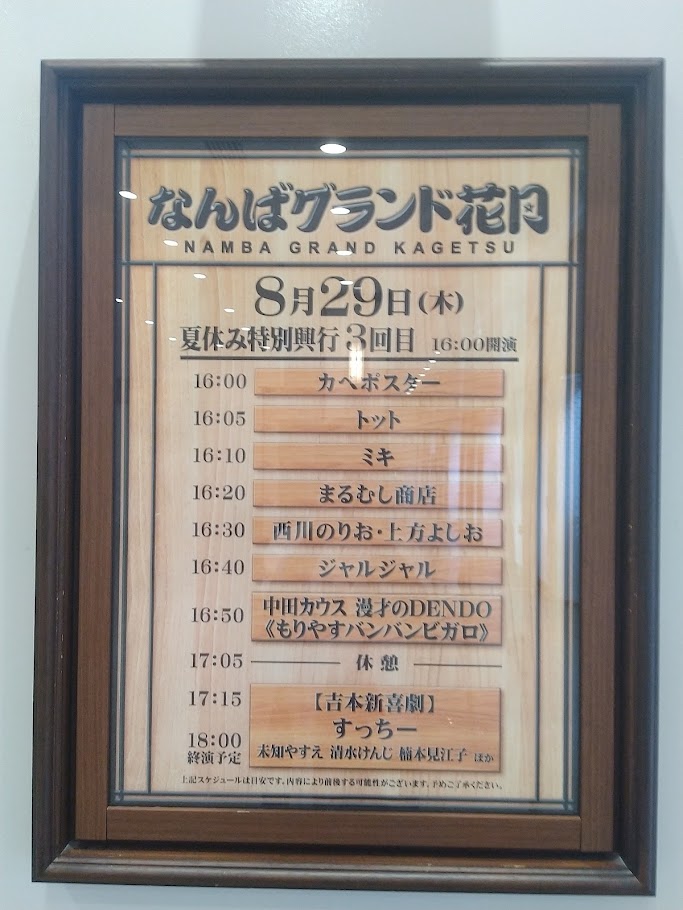 なんばグランド花月
NAMBA GRAND KAGETSU
8月29日(木)
夏休み特別興行3回目 16:00開演
16:00 カベポスター
16:05 トット
16:10 ミキ
16:20 まるむし商店
16:30 西川のりお・上方よしお
16:40 ジャルジャル
16:50 中田カウス 漫才のDENDO
《もりやすバンバンビガロ》
17:05 休憩
17:15 【吉本新喜劇】
すっちー
18:00 未知やすえ 清水けんじ 楠本見江子 ほか
終演予定
上記スケジュールは目安です。内容により前後する可能性がございます。予めご了承ください。